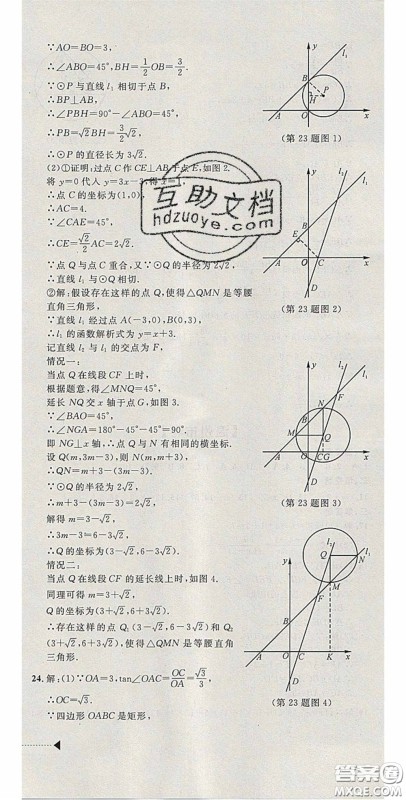 ∵AO=BO=3,
∴∠ABO=45°,BH=1/2 OB=3/2.
∵⊙P与直线l₁相切于点B,
∴BP⊥AB,
∴∠PBH=90°-∠ABO=45°,
∴PB=√2BH=3/2 √2,
∴⊙P的直径长为3√2.
(2)①证明:过点C作CE⊥AB于点E,如图2.
将y=0代入y=3x-3,得x=1,
∴点C的坐标为(1,0),
∴AC=4.
∵∠CAE=45°,
∴CE=√2/2 AC=2√2.
∵点Q与点C重合,又∵⊙Q的半径为2√2,
∴直线l₁与⊙Q相切.
②解:假设存在这样的点Q,使得△QMN是等腰
直角三角形,
∵直线l₁经过点A(-3,0),B(0,3),
∴l₁的函数解析式为y=x+3.
记直线l₂与l₁的交点为F,
情况一:
当点Q在线段CF上时,
根据题意,得∠MNQ=45°,
延长NQ交x轴于点G,如图3.
∵∠BAO=45°,
∴∠NGA=180°-45°-45°=90°,
即NG⊥x轴,∴点Q与N有相同的横坐标.
设Q(m,3m-3),则N(m,m+3),
∴QN=m+3-(3m-3).
∵⊙Q的半径为2√2,
∴m+3-(3m-3)=2√2,
解得m=3-√2,
∴3m-3=6-3√2,
∴Q的坐标为(3-√2,6-3√2).
情况二:
当点Q在线段CF的延长线上时,如图4.
同理可得m=3+√2,
∴Q的坐标为(3+√2,6+3√2).
∴存在这样的点Q₁(3-√2,6-3√2)和Q₂
(3+√2,6+3√2),使得△QMN是等腰直角
三角形.
24.解:(1)∵OA=3,tan∠OAC=OC/OA=√3/3,
∴OC=√3.
∵四边形OABC是矩形,
y
l₁
B
H
P
A
O
x
(第23题图1)
y
l₂
l₁
B
E
A
O
C
x
D
(第23题图2)
y
l₂
l₁
N
F
B
M
Q
A
O
CG
x
D
(第23题图3)
y
l₂
l₁
Q
N
M
F
B
A
O
C
K
x
D
(第23题图4)
互助文档
hdzuoye.com
答案圈
MXQE.COM